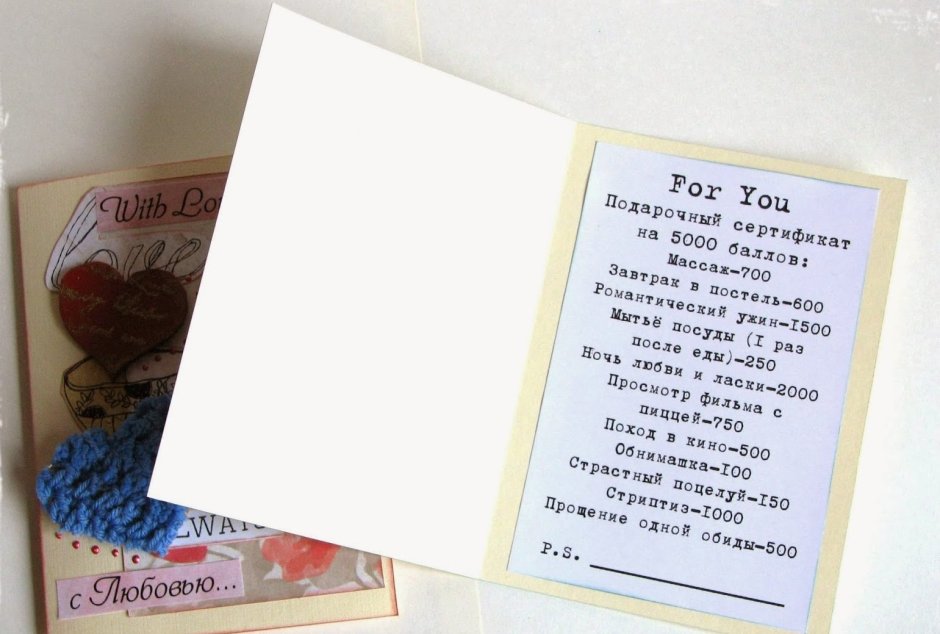 With Lo
For You
Подарочный сертификат
на 5000 баллов:
Массаж-700
Завтрак в постель-600
Романтический ужин-I500
Мытьё посуды (I раз
после еды)-250
Ночь любви и ласки-2000
Просмотр фильма с
пиццей-750
Поход в кино-500
Обнимашка-I00
Страстный поцелуй-I50
Стриптиз-I000
Прощение одной обиды-500
P.S.
LWAYS
с Любовью...